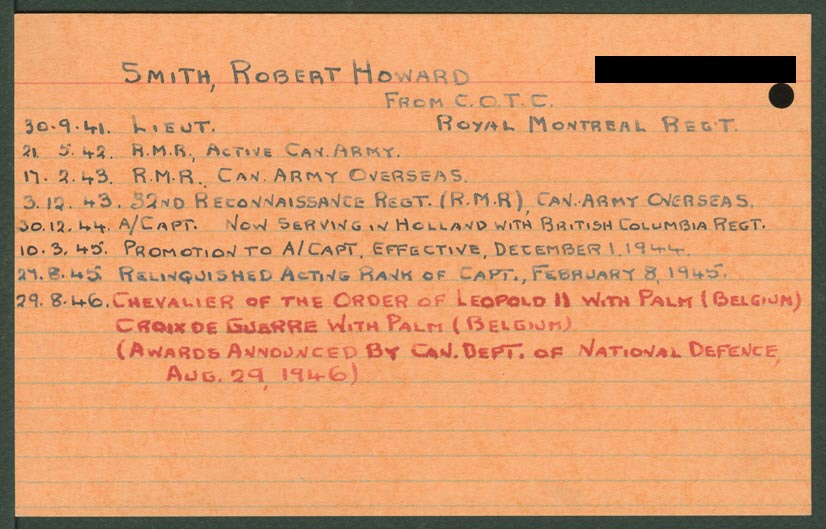 SMITH, ROBERT HOWARD
FROM C.O.T.C.
30.9.41. LIEUT. ROYAL MONTREAL REGT.
21. 5.42. R.M.R., ACTIVE CAN. ARMY.
17. 2.43. R.M.R., CAN. ARMY OVERSEAS.
3.12. 43. 32ND RECONNAISSANCE REGT. (R.M.R), CAN. ARMY OVERSEAS.
30.12.44. A/CAPT. NOW SERVING IN HOLLAND WITH BRITISH COLUMBIA REGT.
10.3.45. PROMOTION TO A/CAPT, EFFECTIVE, DECEMBER 1, 1944.
27.8.45. RELINQUISHED ACTING RANK OF CAPT., FEBRUARY 8, 1945.
29.8.46. CHEVALIER OF THE ORDER OF LEOPOLD II WITH PALM (BELGIUM)
CROIX DE GUERRE WITH PALM (BELGIUM)
(AWARDS ANNOUNCED BY CAN. DEPT. OF NATIONAL DEFENCE,
AUG. 29, 1946)